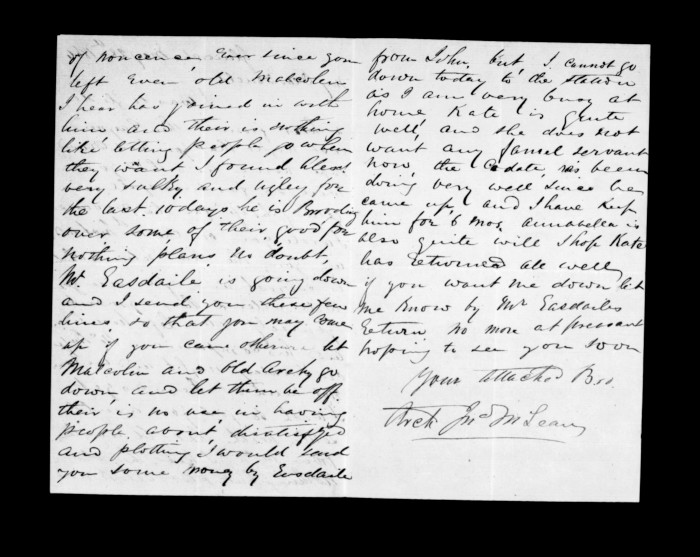 of noncence Ever since you
left Even old Malcolm
I hear has joined in with
him and their is nothing
like letting people go when
they want I found
very sulky and ugley for
the last 10 days he is Brooding
over some of their good for
nothing plans no doubt,
Mr. Easdaile is going down
and I send you these few
lines so that you may come
up if you can otherwise let
Malcolm and Old Archy go
down and let them be off.
their is no use in having
people about disatisfyed
and plotting I would send
you some money by Easdaile
from John, but I cannot go
down today to the station
as I am very busy at
home Kate is quite
well and she does not
want any female servant
now the Cadate has been
doing very well since he
came up and I have Keep
him for 6 mos, Annabella is
also quite will I hop Kate
has returned all well
if you want me down let
me Know by Mr Easdailes
return no more at pressant
hoping to see you soon
Your attached Bro.
Arch Jno McLean